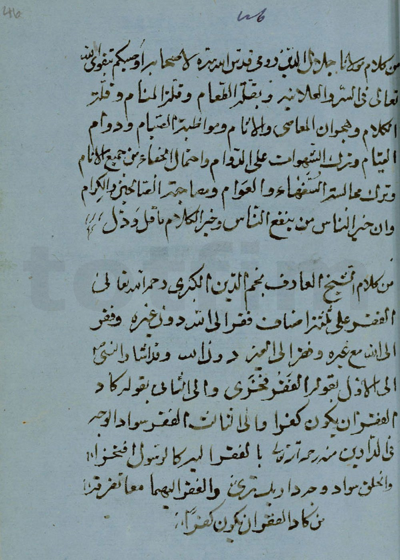 ٤٦
من كلام مولانا جلال الدين رومى قدس الله سره لاصحابه أوصيكم بتقوى الله
تعالى فى السر والعلانيه وبقلة الطعام وقلة المنام وقلة
الكلام وهجران المعاصى والاثام ومواظبة الصيام ودوام
القيام وترك الشهوات على الدوام واحتمال الجفاء من جميع الانام
وترك مجالسة السفهاء والعوام ومصاحبة الصالحين والكرام
وان خير الناس من ينفع الناس وخير الكلام ما قل ودل
من كلام الشيخ العارف نجم الدين الكبرى رحمه الله تعالى
الفقر على ثلثة اصناف فقر الى الله دون غيره وفقر
الى الله مع غيره وفقر الى الغير دون الله وقد اشار النبى
الى الاول بقوله الفقر فخرى والى الثانى بقوله كاد
الفقر ان يكون كفرا والى الثالث الفقر سواد الوجه
فى الدارين
كاد الفقر ان يكون كفرا